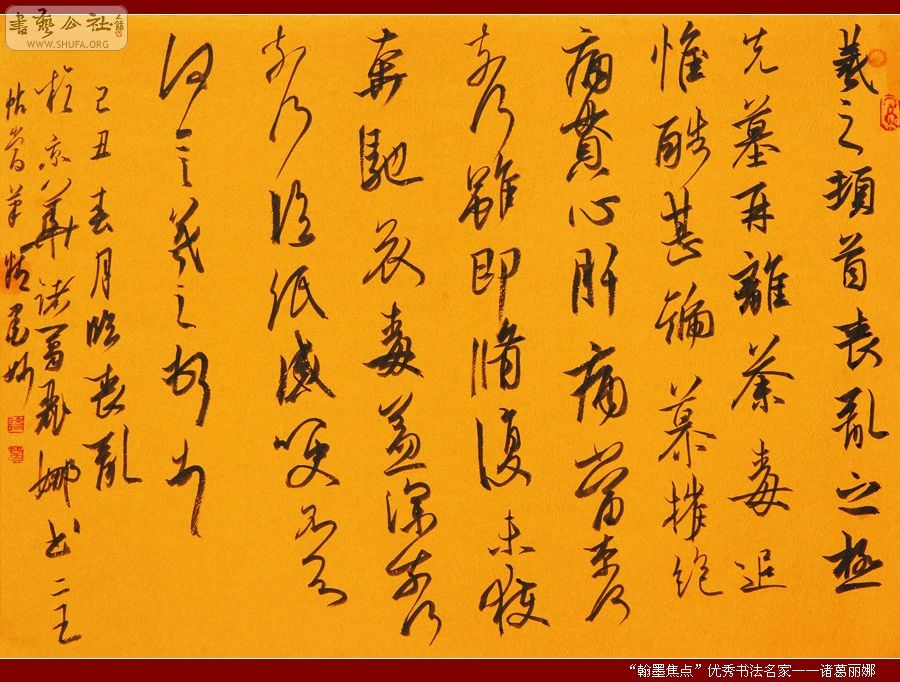 書藝公社
WWW.SHUFA.ORG
羲之頓首喪亂之極
先墓再離荼毒追
惟酷甚號慕摧絕
痛貫心肝痛當奈何
奈何雖即脩復未獲
奔馳哀毒益深奈何
奈何臨紙感哽不知
何言羲之頓首
己丑春月臨喪亂
於京華諸葛麗娜書二王
帖嘗筆精墨妙
“翰墨焦点”优秀书法名家——诸葛丽娜